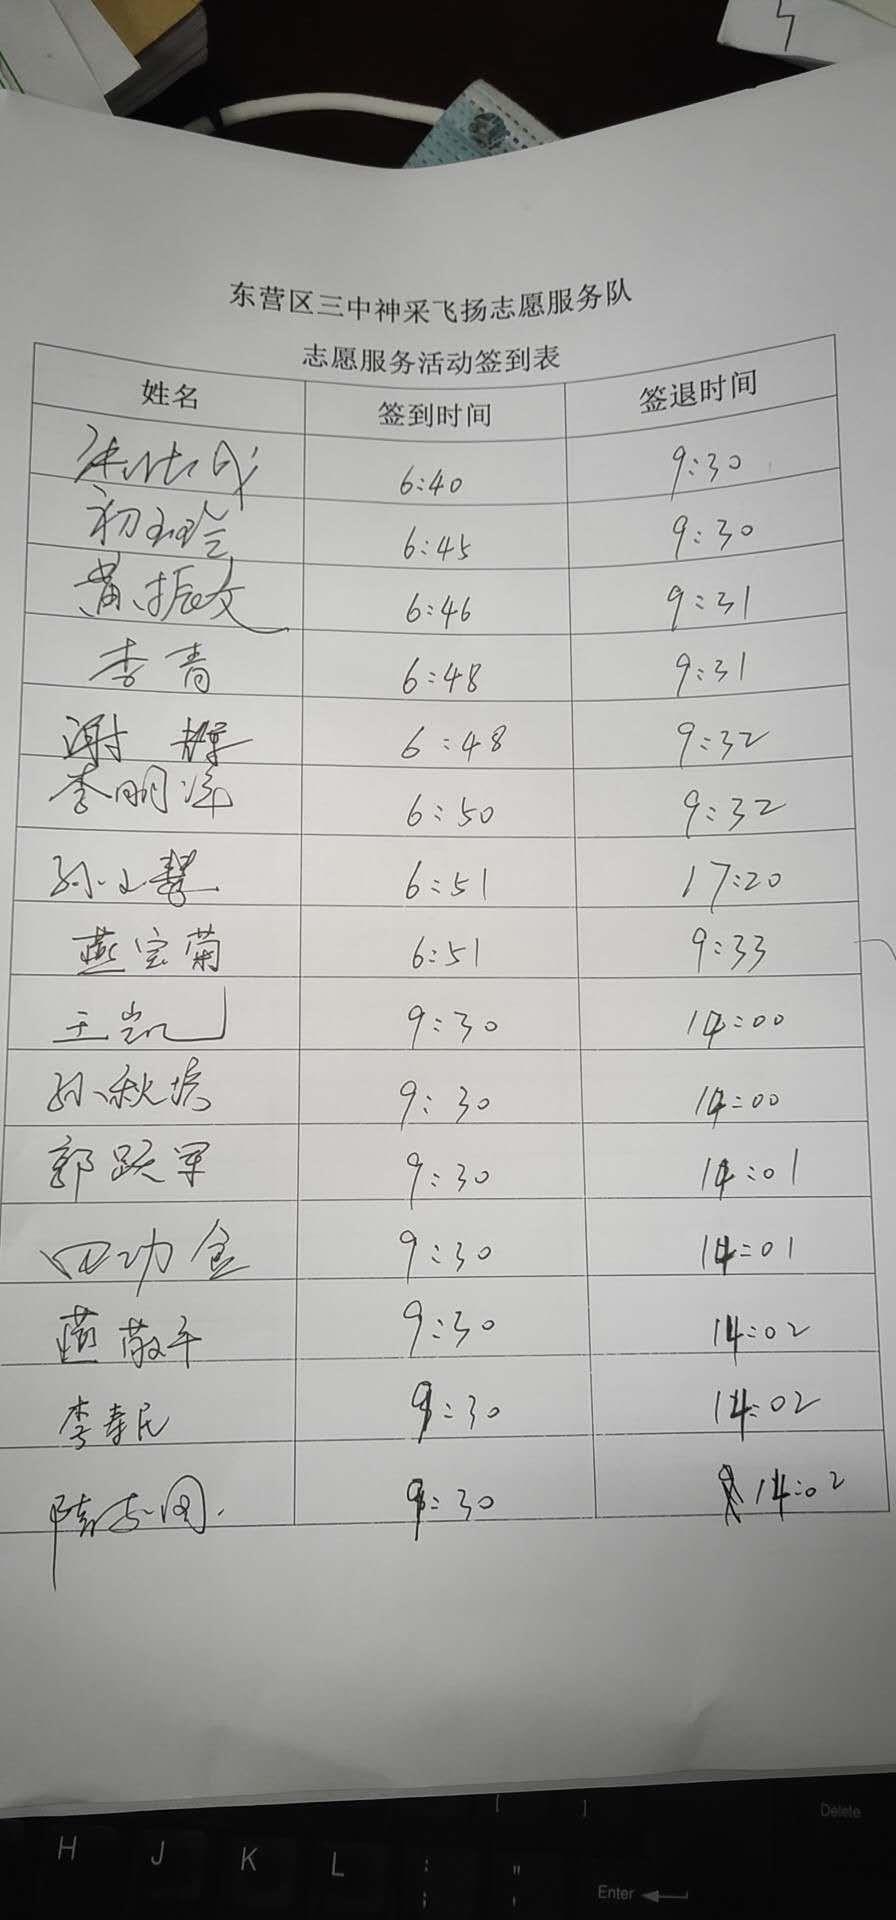 东营区三中神采飞扬志愿服务队
志愿服务活动签到表
姓名 签到时间 签退时间
6:40 9:30
6:45 9:30
黄振文 6:46 9:31
李青 6:48 9:31
谢 6:48 9:32
李明 6:50 9:32
孙 慧 6:51 17:20
燕宝菊 6:51 9:33
王凯 9:30 14:00
孙秋 9:30 14:00
郭跃军 9:30 14:01
田功 9:30 14:01
敬平 9:30 14:02
李寿民 9:30 14:02
9:30 14:02
[ ] Delete
H J K L : ; " ' Enter